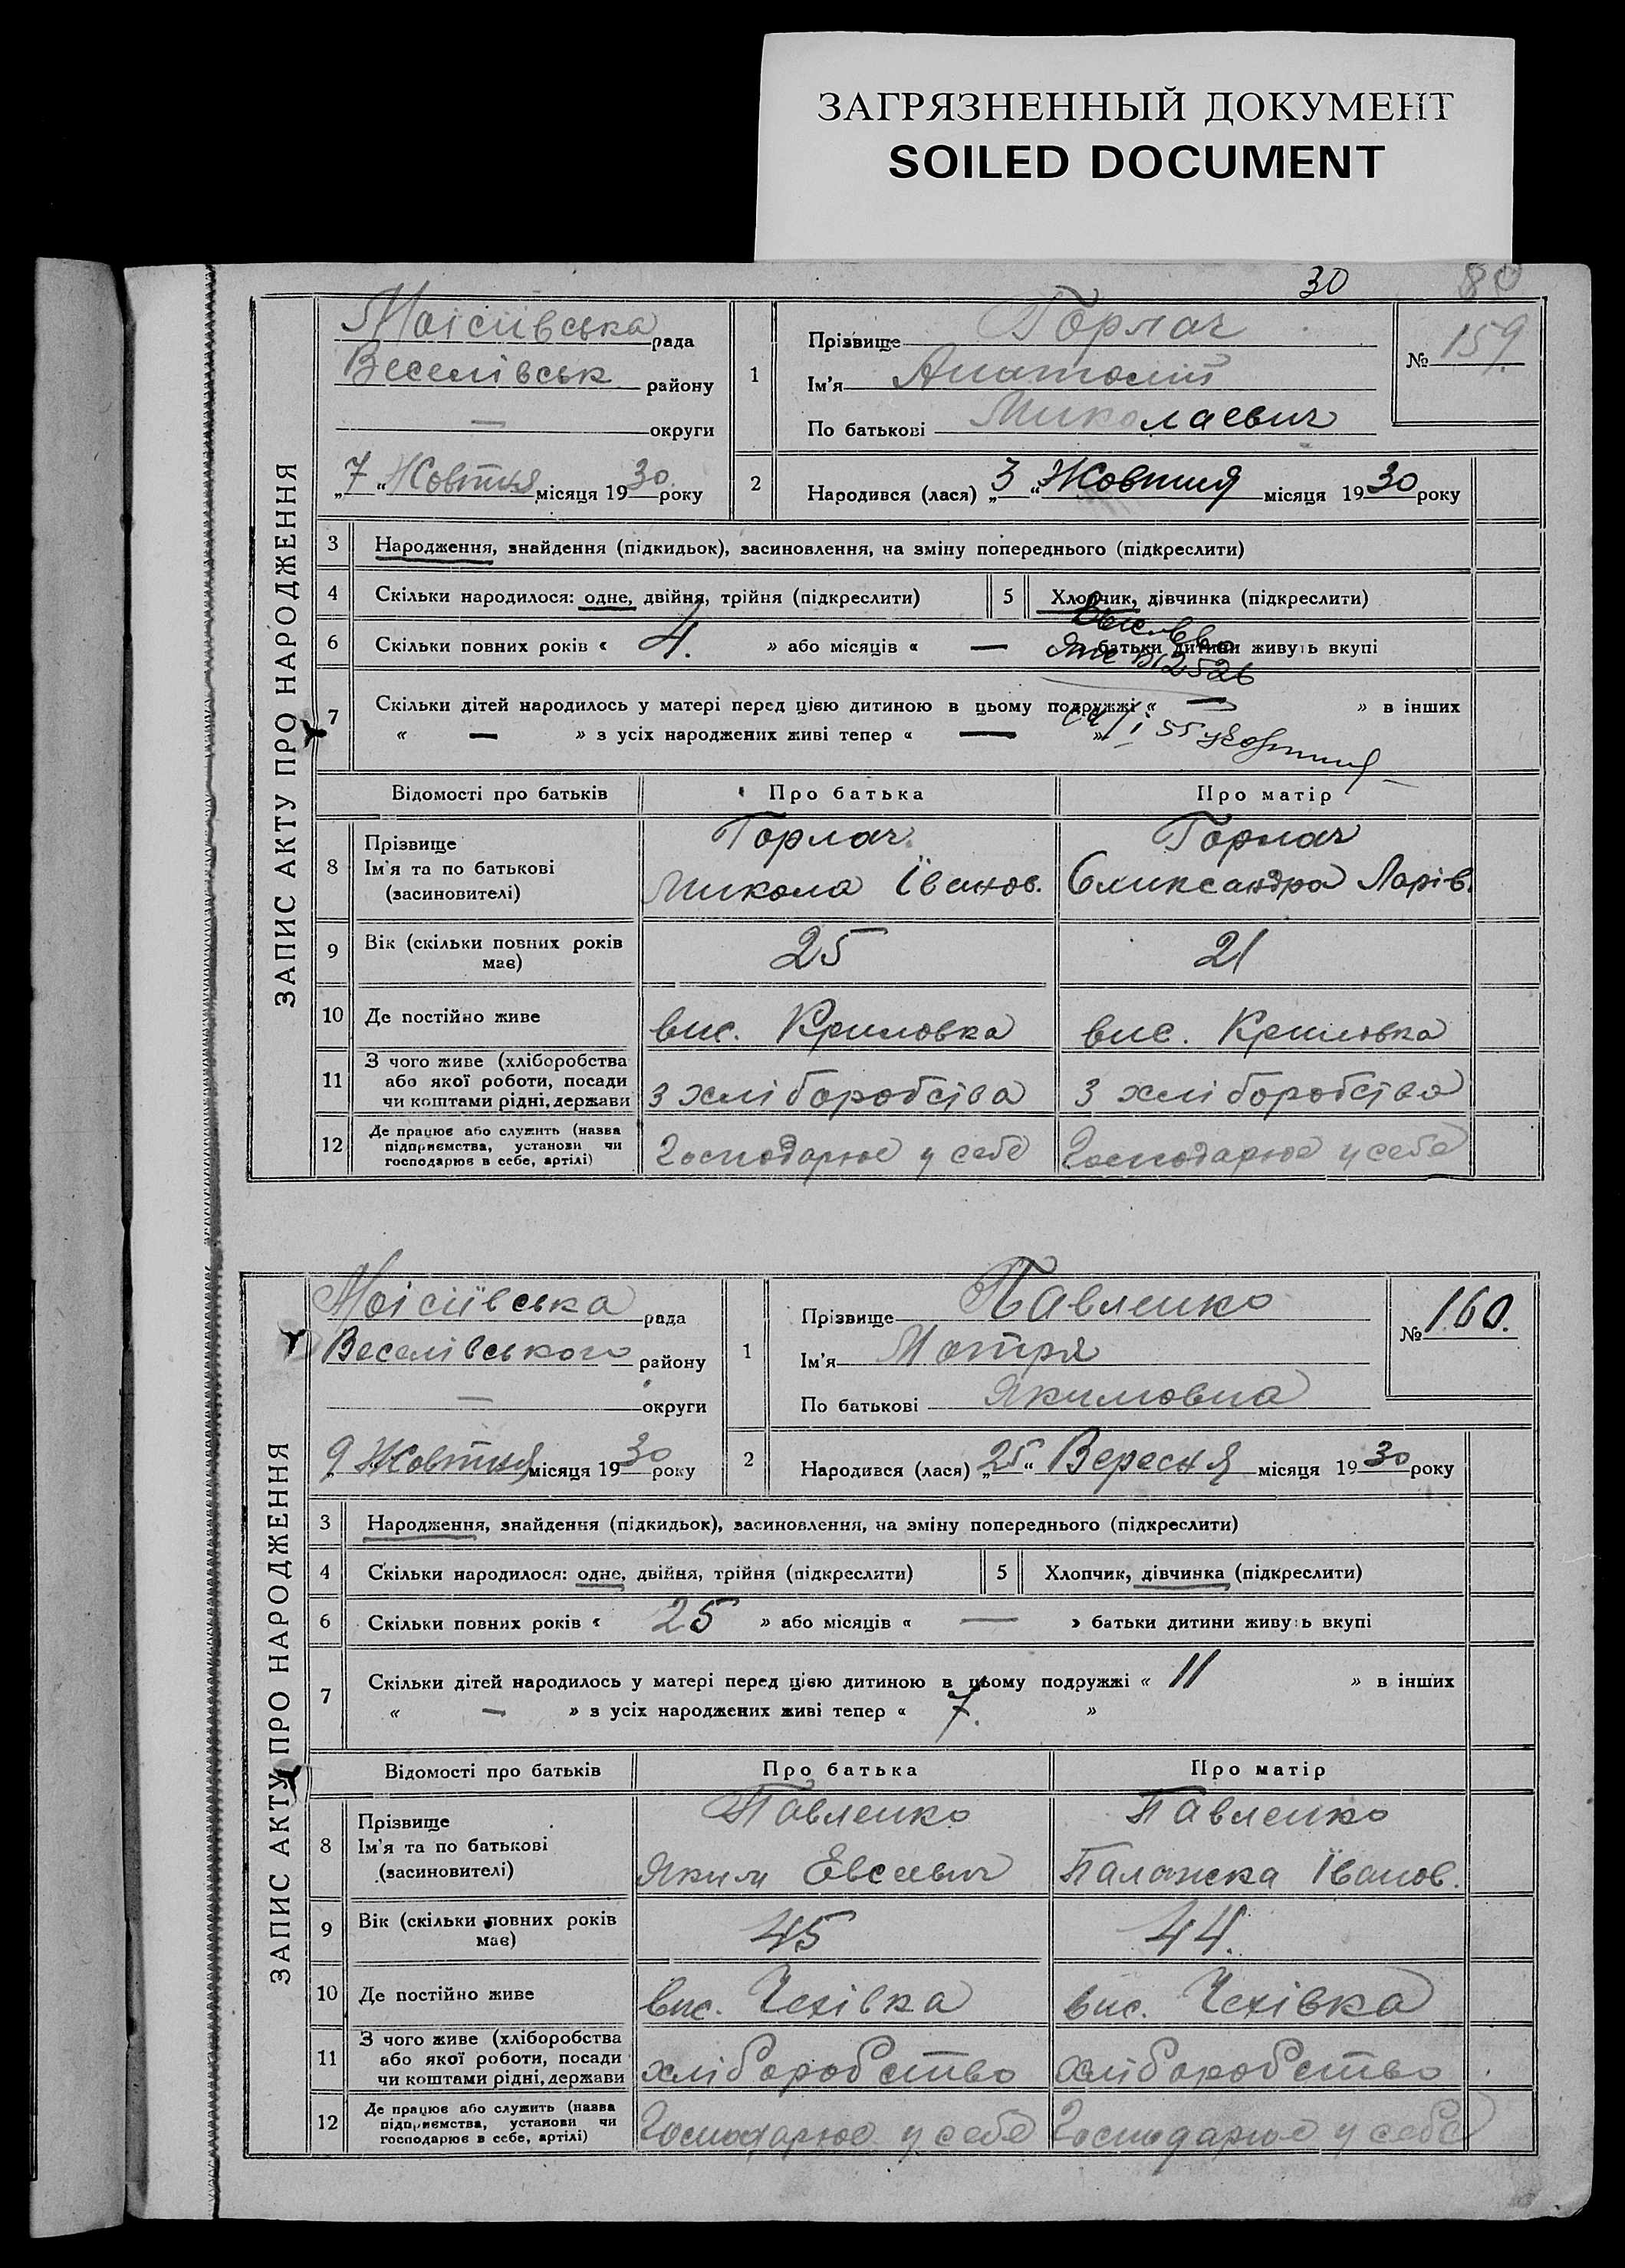 ЗАГРЯЗНЕННЫЙ ДОКУМЕНТ
SOILED DOCUMENT
30 80
ЗАПИС АКТУ ПРО НАРОДЖЕННЯ
Моісіївська рада
Веселівськ району
— округи
„7“ Жовтня місяця 1930 року
1
Прізвище Горлач
Ім'я Анатолій
По батькові Миколаевич
№ 159.
2 Народився (лася) „3“ Жовтня місяця 1930 року
3 Народження, знайдення (підкидьок), засиновлення, на зміну попереднього (підкреслити)
4 Скільки народилося: одне, двійня, трійня (підкреслити)
5 Хлопчик, дівчинка (підкреслити)
6 Скільки повних років « 4. » або місяців « — батьки дитини живуть вкупі
7 Скільки дітей народилось у матері перед цією дитиною в цьому подружжі « — » в інших
« — » з усіх народжених живі тепер « — »
Відомості про батьків Про батька Про матір
8 Прізвище
Ім'я та по батькові
(засиновителі)
Горлач
Микола Їванов.
Горлач
Олександра Ларів.
9 Вік (скільки повних років має) 25 21
10 Де постійно живе вис. Криловка вис. Криловка
11 З чого живе (хліборобства
або якої роботи, посади
чи коштами рідні, держави
з хліборобства з хліборобства
12 Де працює або служить (назва
підприємства, установи чи
господарює в себе, артілі)
Господарює у себе Господарює у себе
ЗАПИС АКТУ ПРО НАРОДЖЕННЯ
Моісіївська рада
Веселівського району
— округи
9 Жовтня місяця 1930 року
1
Прізвище Павленко
Ім'я Мотря
По батькові Якимовна
№ 160.
2 Народився (лася) „25“ Вересня місяця 1930 року
3 Народження, знайдення (підкидьок), засиновлення, на зміну попереднього (підкреслити)
4 Скільки народилося: одне, двійня, трійня (підкреслити)
5 Хлопчик, дівчинка (підкреслити)
6 Скільки повних років « 25 » або місяців « — » батьки дитини живуть вкупі
7 Скільки дітей народилось у матері перед цією дитиною в цьому подружжі « 11 » в інших
« — » з усіх народжених живі тепер « 7. »
Відомості про батьків Про батька Про матір
8 Прізвище
Ім'я та по батькові
(засиновителі)
Павленко
Яким Евсеевич
Павленко
Палажска Їванов.
9 Вік (скільки повних років має) 45 44.
10 Де постійно живе вис. Чехівка вис. Чехівка
11 З чого живе (хліборобства
або якої роботи, посади
чи коштами рідні, держави
хліборобство хліборобство
12 Де працює або служить (назва
підприємства, установи чи
господарює в себе, артілі)
Господарює у себе Господарює у себе